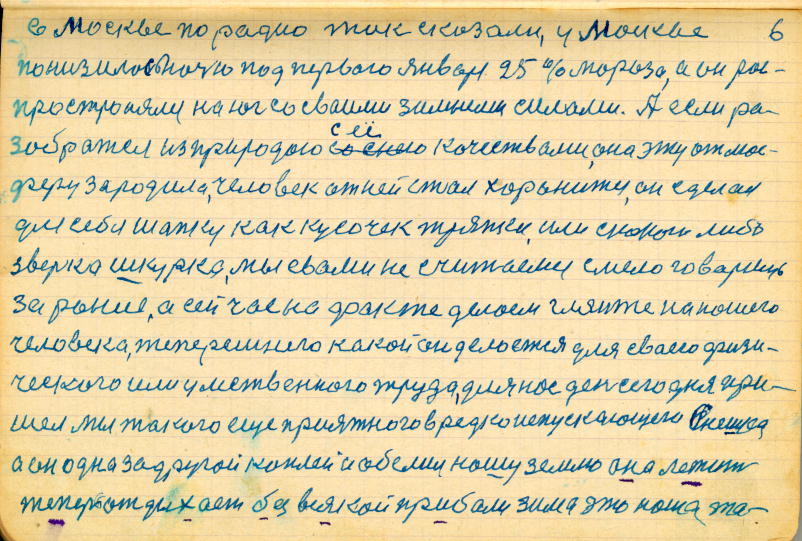 с Москве по радио так сказали, у Москве 6
понизилось ночю под первого январ. 25 % мороза, а он рас-
простроняли на юг со своими зимнеми силами. А если ра-
зобратся из природою сеи качествами, она эту отмос-
феру зародила, человек отней стал хоранитця, он сделал
для себя шапку как кусочек тряпки, или
зверка шкурка, мы свами не считаемся смело говарить
за рание, а сей час на факте делоем глянте на ношего
человека, теперешнего какой он делоется для своего физи-
ческого или умственного труда, для нос ден сегодня при-
шел мы такого еще приятного вредко непускающего
а он одна задругой коплей и обелил ношу землю она лежит
теперь отдыхает без всякой прибали зима это ноша та-